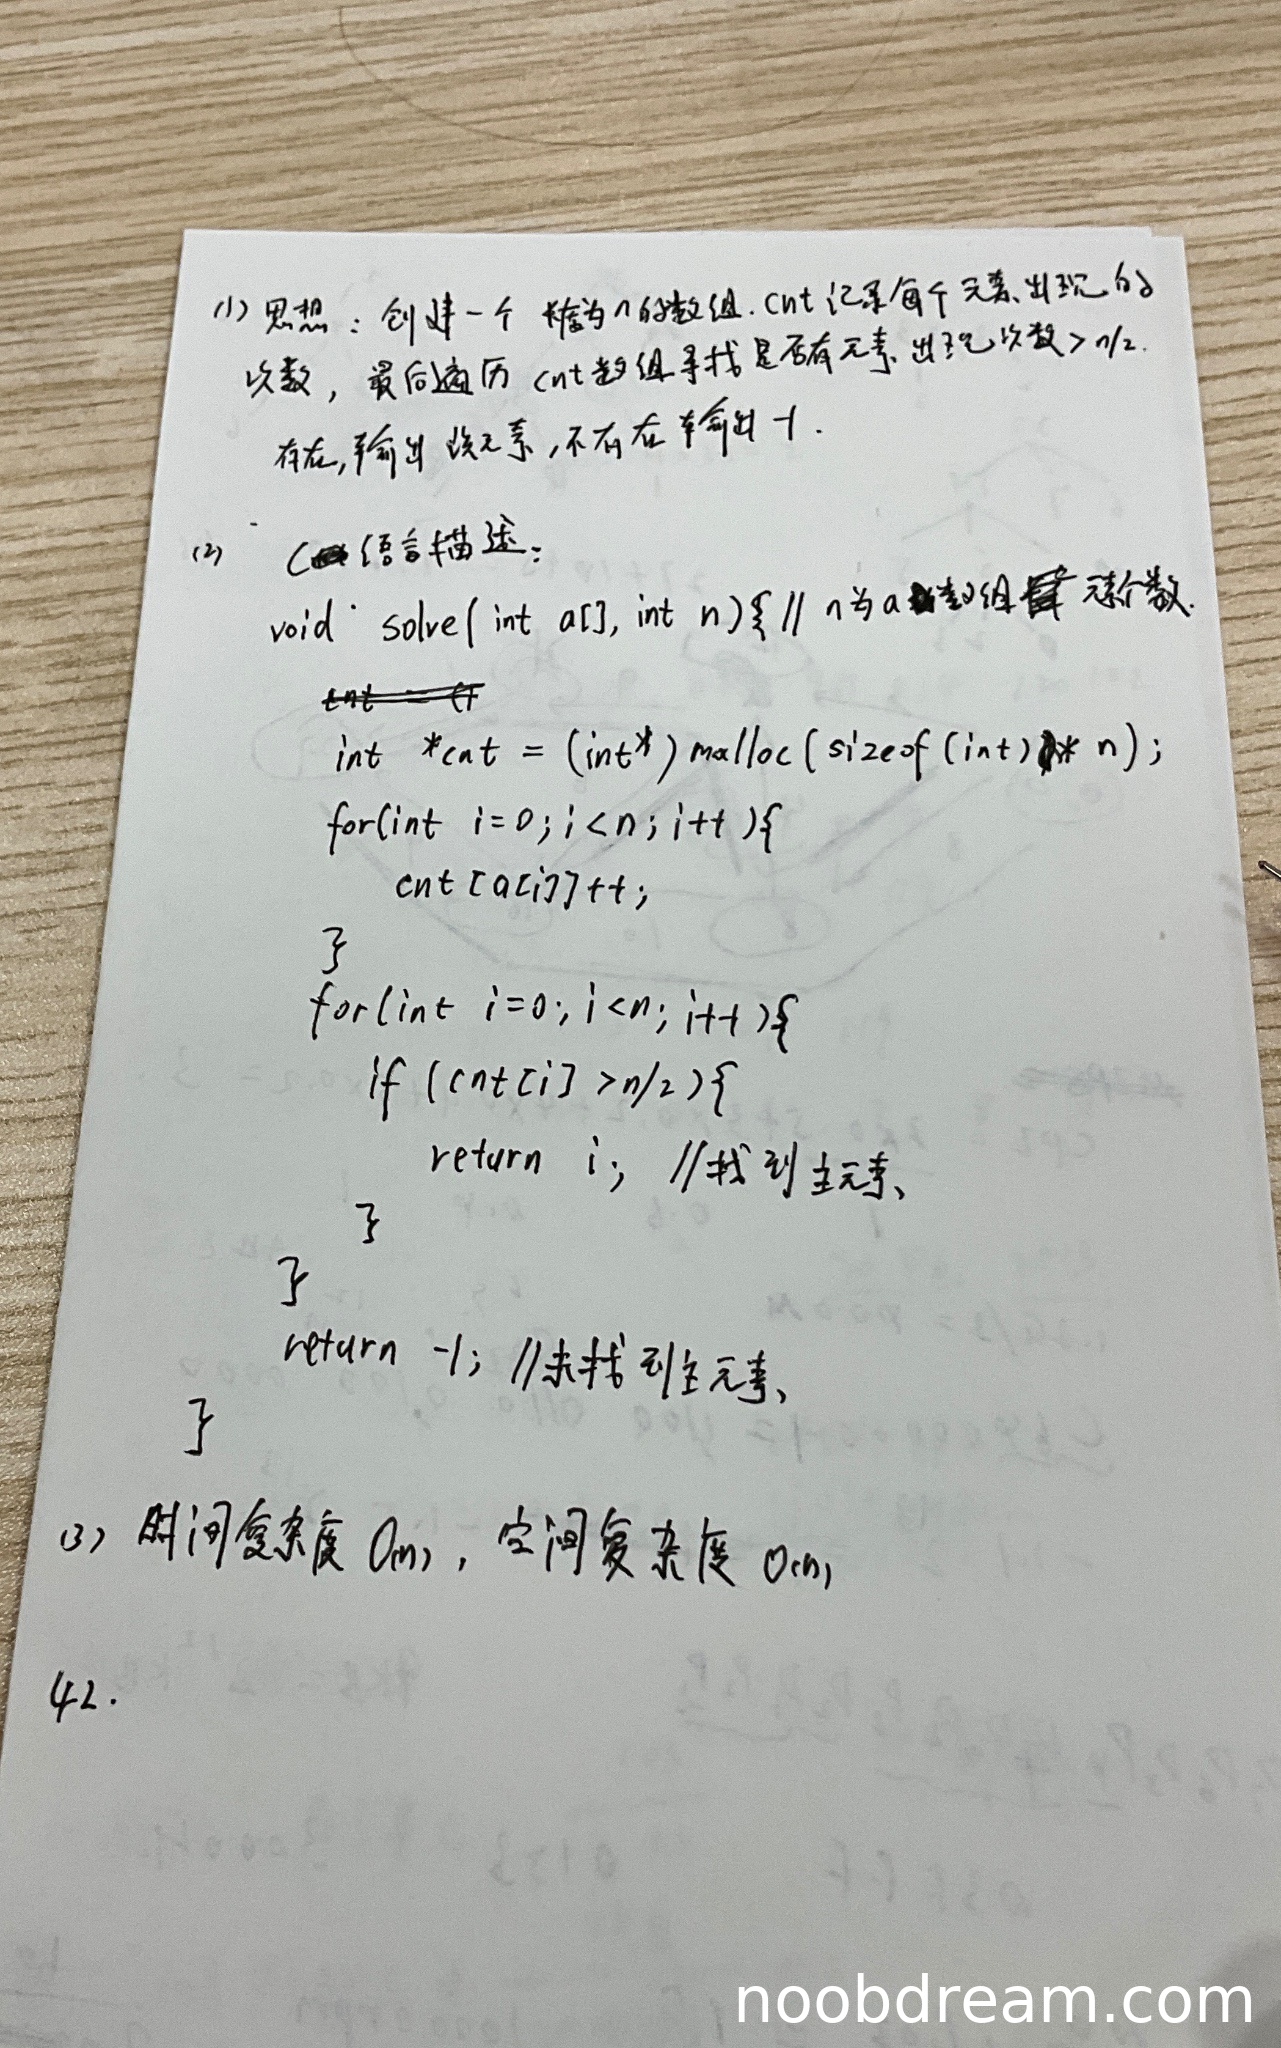 (1) 思想: 创建一个长度为n的数组.cnt记录每个元素出现的
次数, 最后遍历cnt数组寻找是否有元素出现次数>n/2.
存在,输出该元素,不存在输出-1.
(2) C语言描述:
void solve(int a[], int n){ // n为a数组元素个数.
int *cnt = (int*)malloc(sizeof(int)* n);
for(int i=0; i<n; i++){
cnt[a[i]]++;
}
for(int i=0; i<n; i++){
if (cnt[i] >n/2){
return i; //找到主元素
}
}
return -1; //未找到主元素
}
(3) 时间复杂度 O(n), 空间复杂度 O(n)
42.
noobdream.com